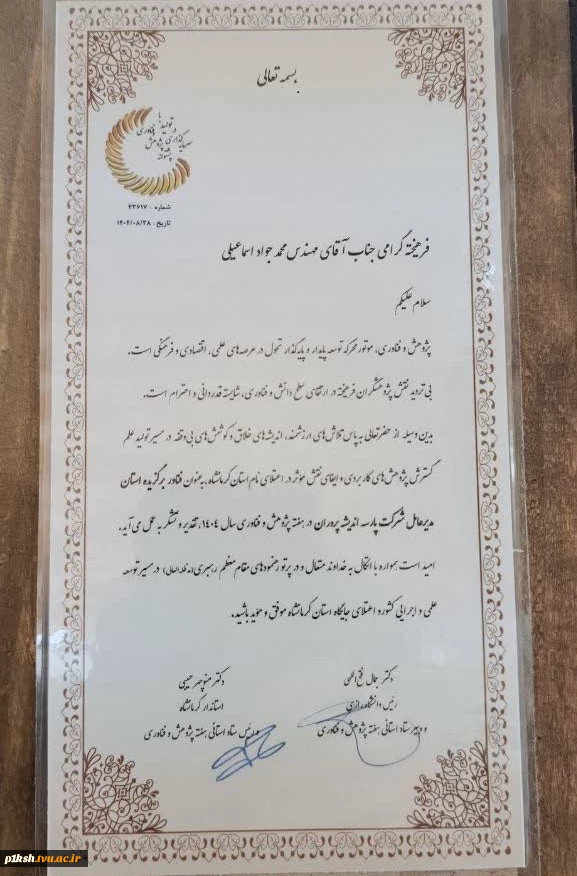 بسمه تعالی
سرمایه گذاری در تولید
شماره : ۴۳۶۱۷
تاریخ : ۱۴۰۴/۰۸/۲۸
فرهیخته گرامی جناب آقای مهندس محمد جواد اسماعیلی
سلام علیکم
پژوهش و فناوری، موتور محرکه توسعه پایدار و پایه گذار تحول در عرصه های علمی، اقتصادی و فرهنگی است.
بی تردید نقش پژوهشگران فرهیخته در ارتقای سطح دانش و فناوری، شایسته قدردانی و احترام است.
بدین وسیله از حضرتعالی به پاس تلاش های ارزشمند، اندیشه های خلاق و کوشش های بی وقفه در مسیر تولید علم
گسترش پژوهش های کاربردی و ایفای نقش موثر در اعتلای نام استان کرمانشاه، به عنوان فناور برگزیده استان
مدیرعامل شرکت پارسه اندیشه پروران در هفته پژوهش و فناوری سال ۱۴۰۴، تقدیر و تشکر به عمل می آید.
امید است همواره با اتکال به خداوند متعال و در پرتو رهنمودهای مقام معظم رهبری (مدظله العالی) در مسیر توسعه
علمی و اجرایی کشور و اعتلای جایگاه استان کرمانشاه موفق و موید باشید.
دکتر جمال فتح الهی
رئیس دانشگاه رازی
و دبیر ستاد استانی هفته پژوهش و فناوری
دکتر منوچهر حبیبی
استاندار کرمانشاه
و رئیس ستاد استانی هفته پژوهش و فناوری
p1ksh.tvu.ac.ir